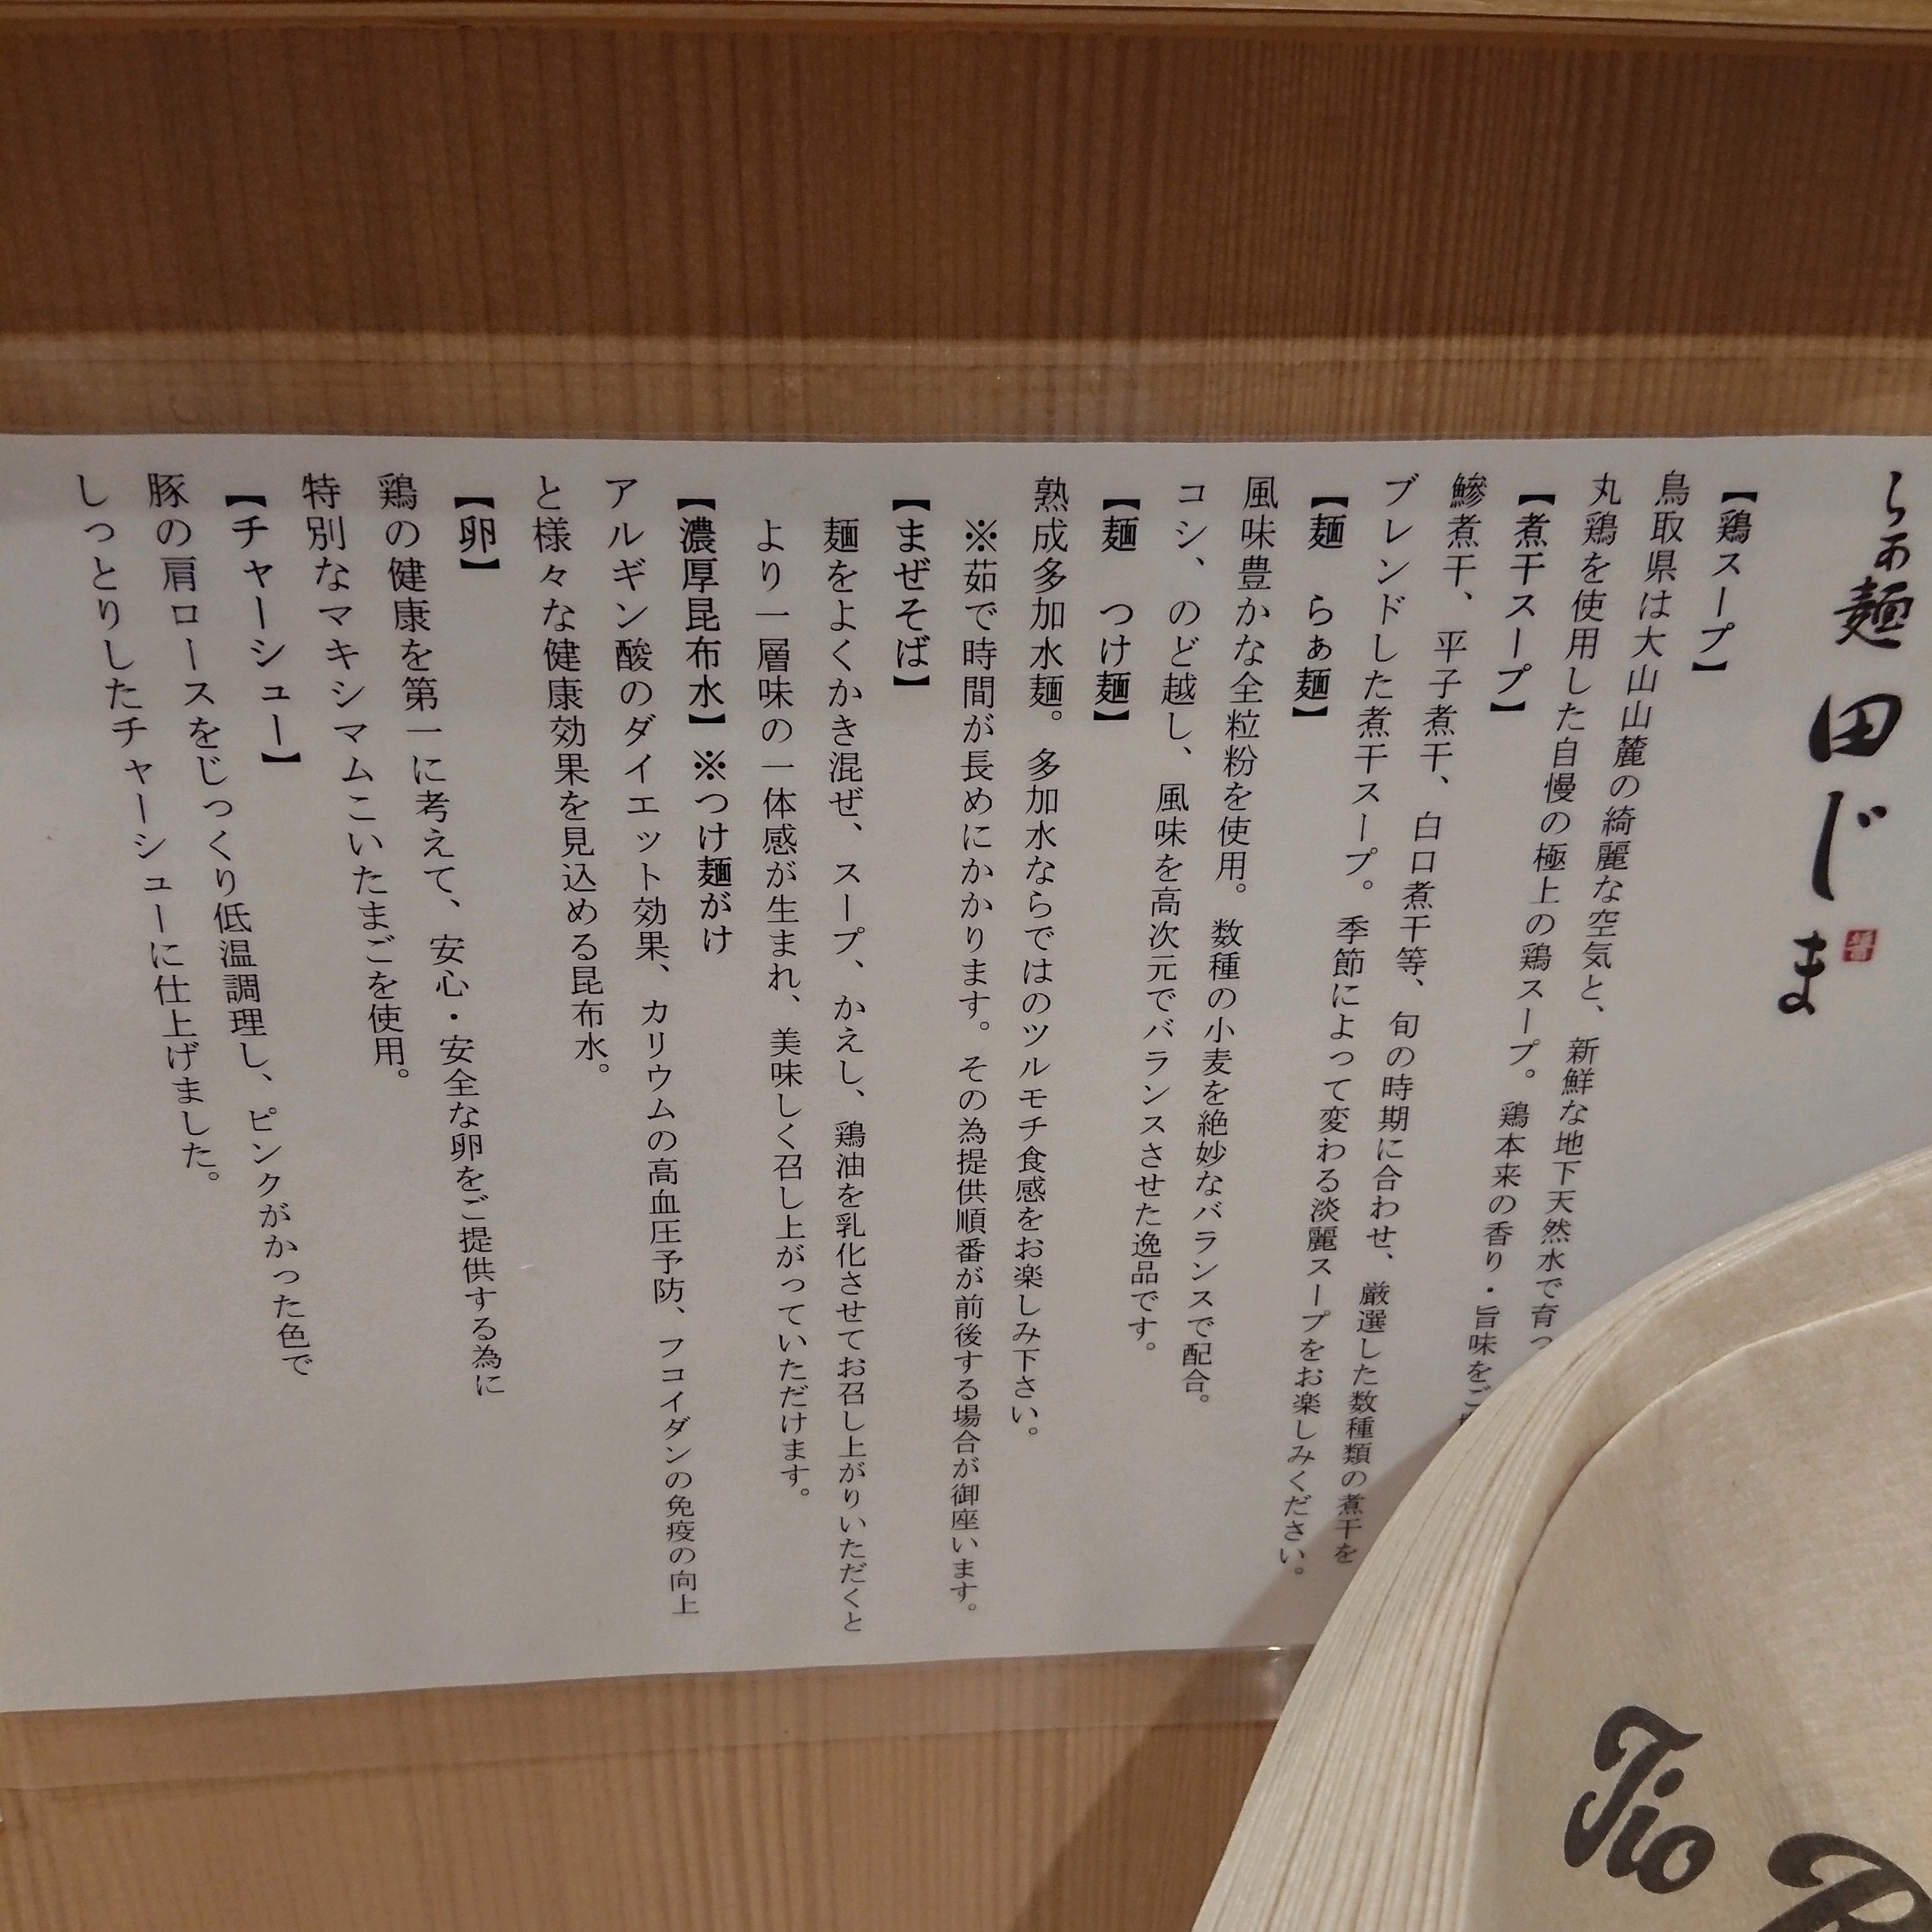 らぁ麺 田じま
【鶏スープ】
鳥取県は大山山麓の綺麗な空気と、新鮮な地下天然水で育っ
丸鶏を使用した自慢の極上の鶏スープ。鶏本来の香り・旨味をご
【煮干スープ】
鯵煮干、平子煮干、白口煮干等、旬の時期に合わせ、厳選した数種類の煮干を
ブレンドした煮干スープ。季節によって変わる淡麗スープをお楽しみください。
【麺 らぁ麺】
風味豊かな全粒粉を使用。数種の小麦を絶妙なバランスで配合。
コシ、のど越し、風味を高次元でバランスさせた逸品です。
【麺 つけ麺】
熟成多加水麺。多加水ならではのツルモチ食感をお楽しみ下さい。
※茹で時間が長めにかかります。その為提供順番が前後する場合が御座います。
【まぜそば】
麺をよくかき混ぜ、スープ、かえし、鶏油を乳化させてお召し上がりいただくと
より一層味の一体感が生まれ、美味しく召し上がっていただけます。
【濃厚昆布水】※つけ麺がけ
アルギン酸のダイエット効果、カリウムの高血圧予防、フコイダンの免疫の向上
と様々な健康効果を見込める昆布水。
【卵】
鶏の健康を第一に考えて、安心・安全な卵をご提供する為に
特別なマキシマムこいたまごを使用。
【チャーシュー】
豚の肩ロースをじっくり低温調理し、ピンクがかった色で
しっとりしたチャーシューに仕上げました。
Tio